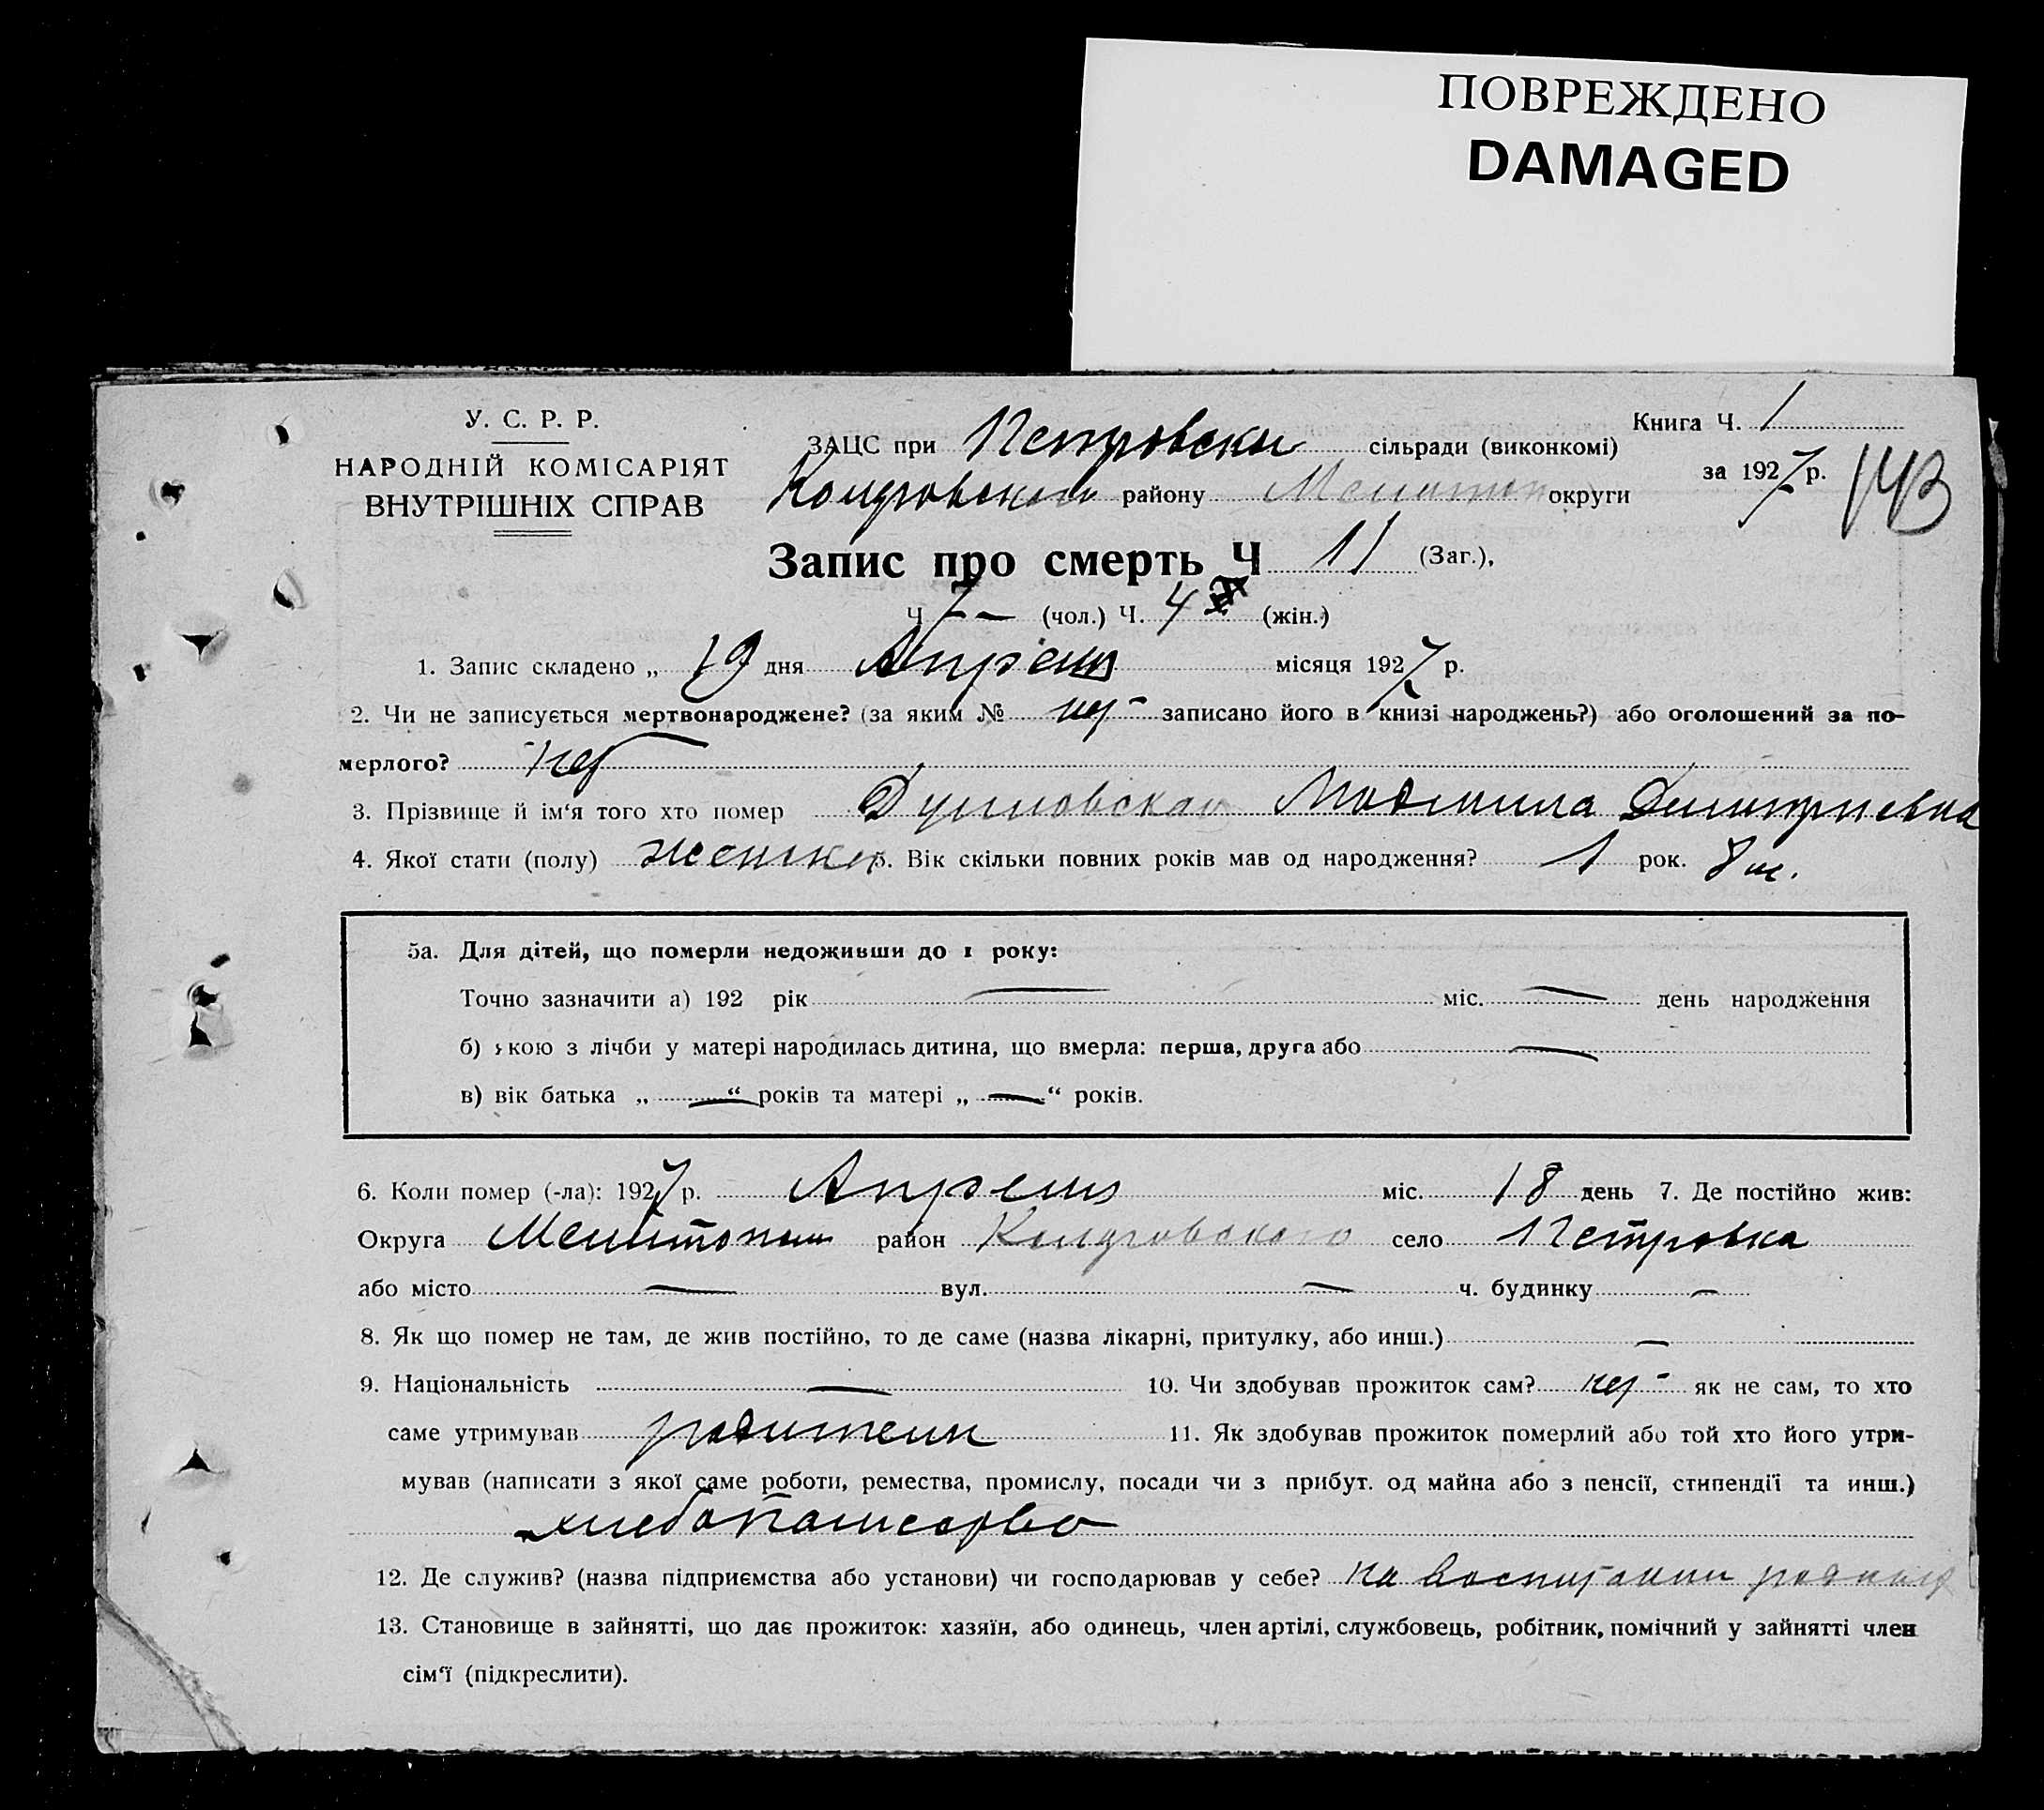 ПОВРЕЖДЕНО
DAMAGED
У. С. Р. Р.
НАРОДНІЙ КОМІСАРІЯТ
ВНУТРІШНІХ СПРАВ
Книга Ч. 1
ЗАЦС при Петровски сільради (виконкомі)
за 1927 р. 143
району Мелитоп округи
Запис про смерть Ч 11 (Заг.),
Ч 7 — (чол.) Ч. 4 (жін.)
1. Запис складено „ 19 дня Апреля місяця 1927 р.
2. Чи не записується мертвонароджене? (за яким № нет записано його в книзі народжень?) або оголошений за по-
мерлого? нет
3. Прізвище й ім'я того хто помер Людмила Дмитриевна
4. Якої стати (полу) женска 5. Вік скільки повних років мав од народження? 1 рок. 8 м.
5а. Для дітей, що померли недоживши до 1 року:
Точно зазначити а) 192 рік — міс. — день народження
б) якою з лічби у матері народилась дитина, що вмерла: перша, друга або —
в) вік батька „ — “ років та матері „ — “ років.
6. Коли помер (-ла): 1927 р. Апреля міс. 18 день 7. Де постійно жив:
Округа район село Петровка
або місто — вул. — ч. будинку —
8. Як що помер не там, де жив постійно, то де саме (назва лікарні, притулку, або инш.) —
9. Національність — 10. Чи здобував прожиток сам? нет як не сам, то хто
саме утримував родители 11. Як здобував прожиток померлий або той хто його утри-
мував (написати з якої саме роботи, ремества, промислу, посади чи з прибут. од майна або з пенсії, стипендії та инш.)
хлебопашество
12. Де служив? (назва підприємства або установи) чи господарював у себе? на воспитании
13. Становище в зайнятті, що дає прожиток: хазяїн, або одинець, член артілі, службовець, робітник, помічний у зайнятті член
сім'ї (підкреслити).